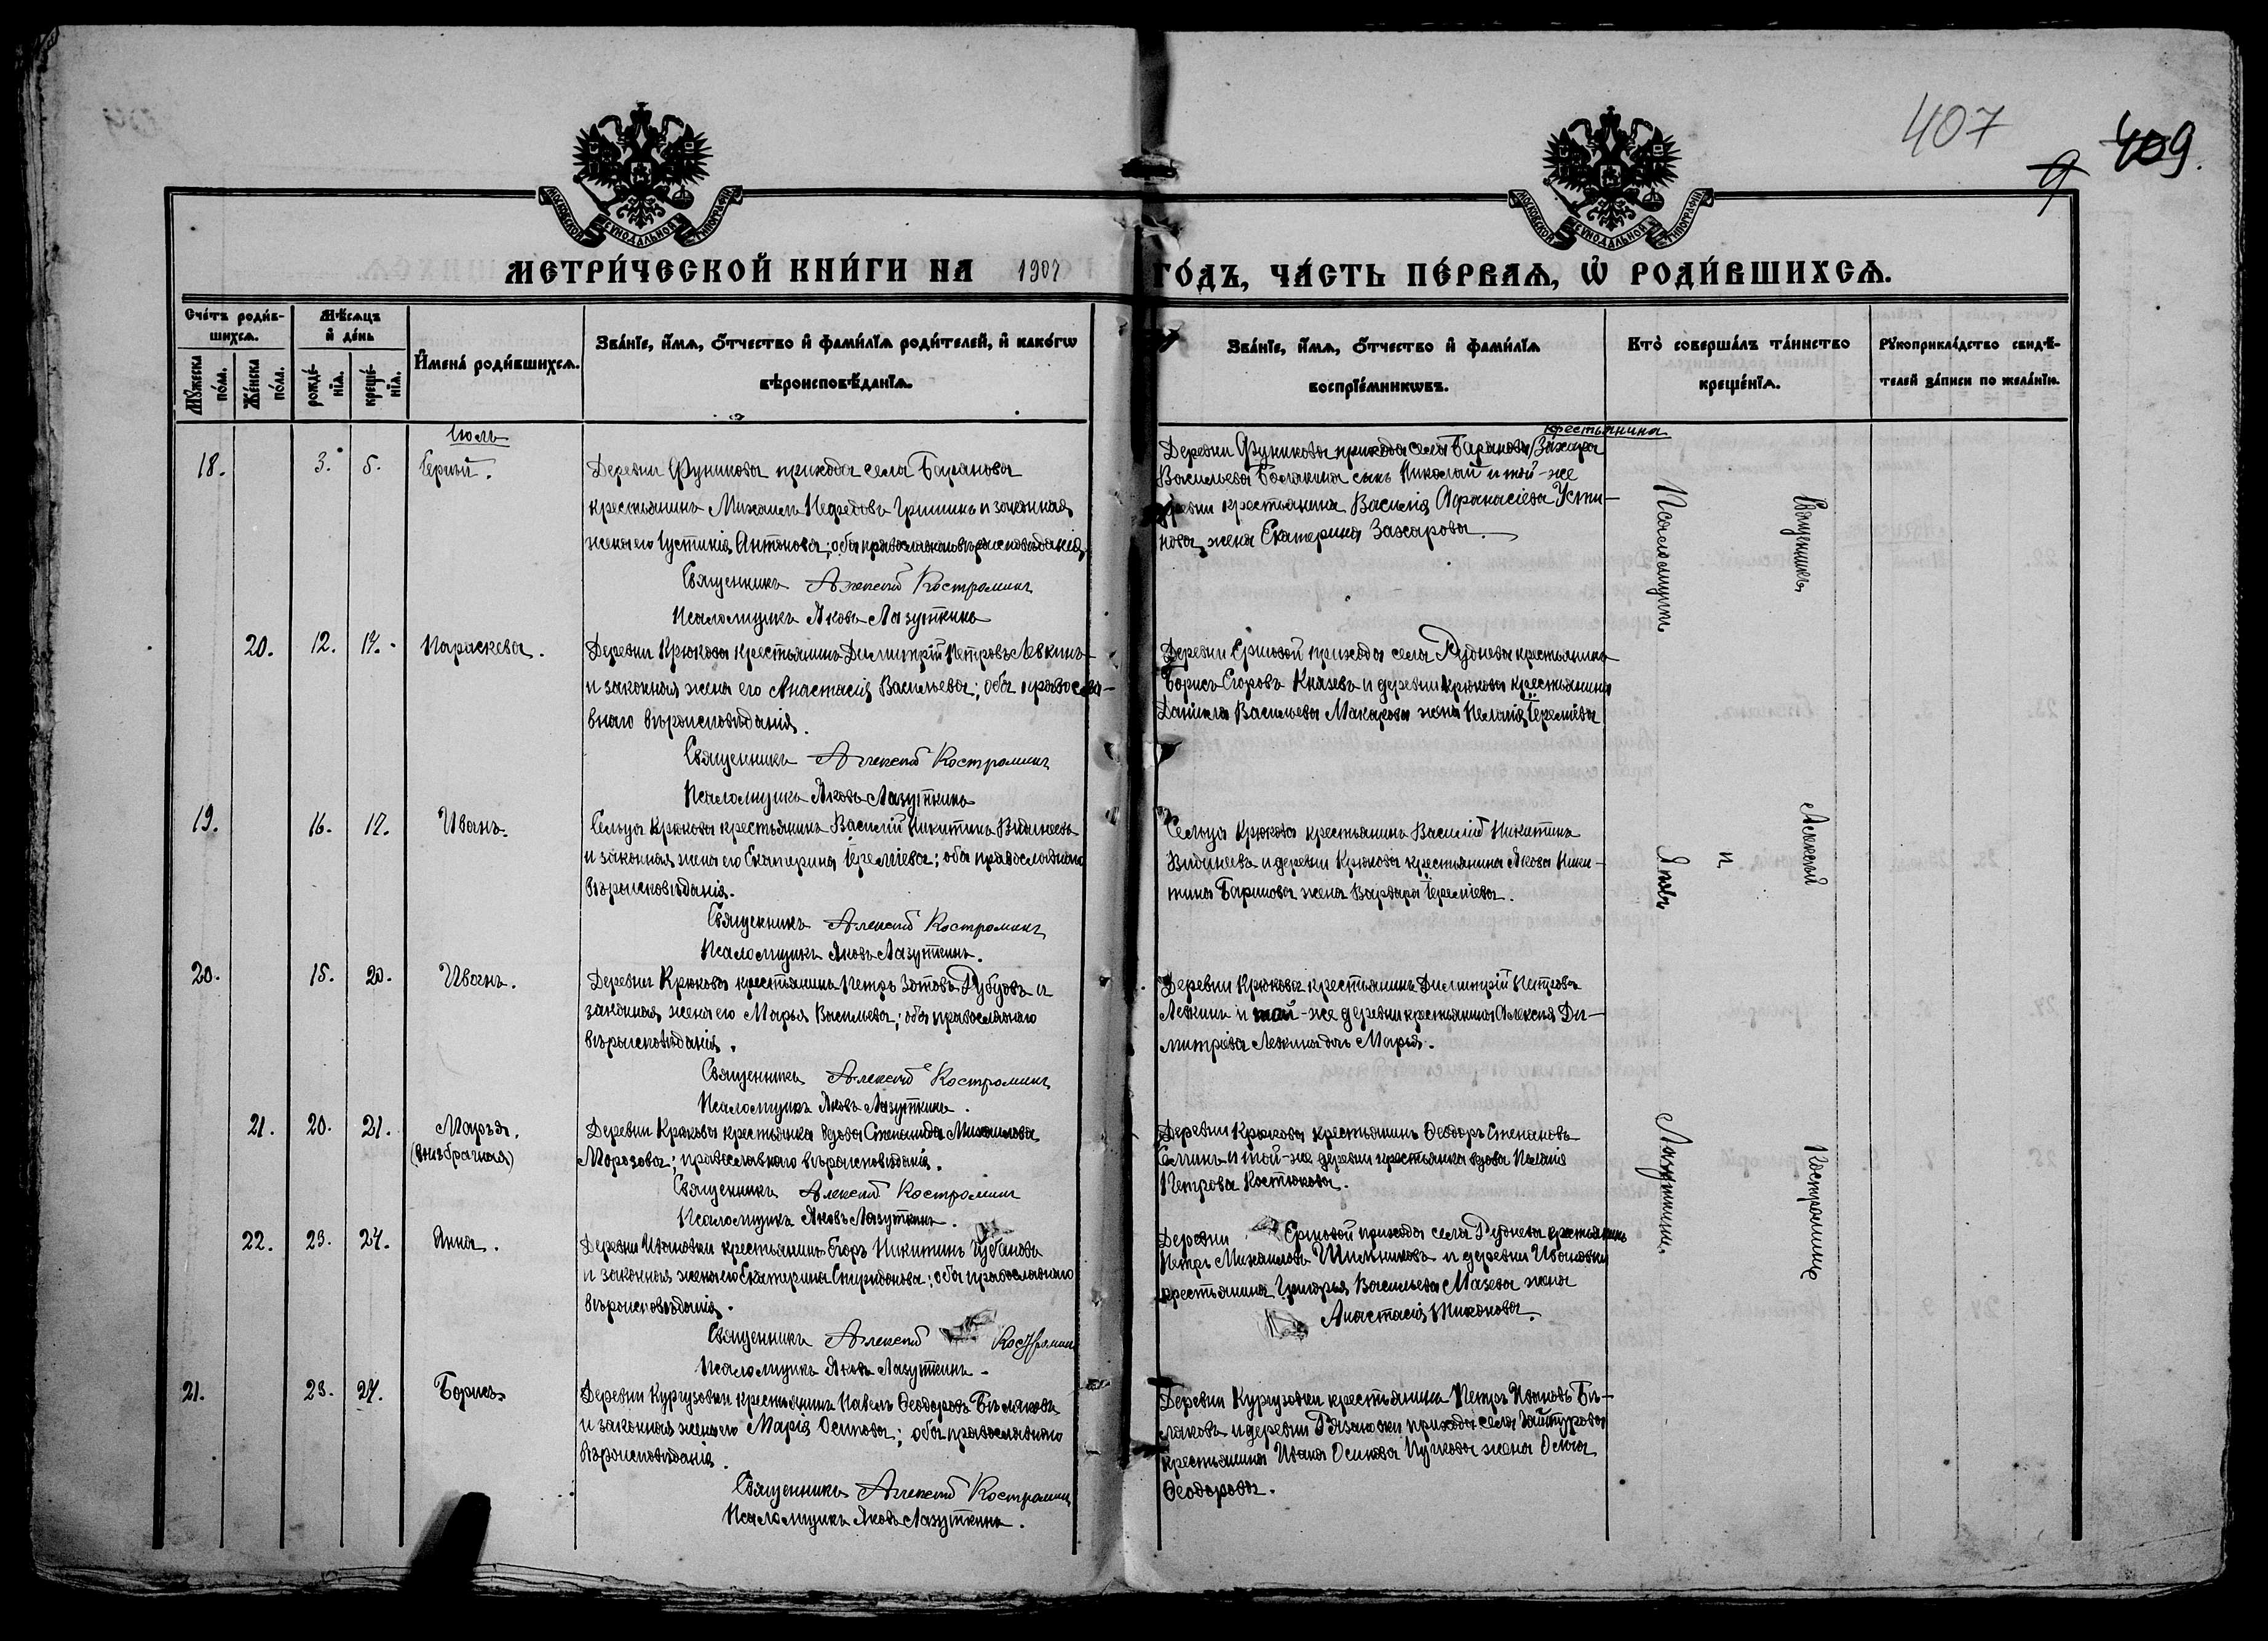 407
409.
9
МОСКОВСКОЙ СѴНОДАЛЬНОЙ ТИПОГРАФІИ
МОСКОВСКОЙ СѴНОДАЛЬНОЙ ТИПОГРАФІИ
МЕТРИ́ЧЕСКОЙ КНИ́ГИ НА 1907 ГО́ДЪ, ЧА́СТЬ ПЕ́РВАѦ, Ѡ҆ РОДИ́ВШИХСѦ.
Сче́тъ роди́в-
шихсѧ.
Мꙋ́жеска по́ла.
Же́нска по́ла.
Мѣ́сѧцъ
и҆ де́нь
рожде́-
нїѧ.
креще́-
нїѧ.
И҆мена̀ роди́вшихсѧ.
Зва́нїе, и҆́мѧ, ѻ҆́тчество и҆ фами́лїѧ роди́телей, и҆ како́гѡ
вѣроисповѣ́данїѧ.
Зва́нїе, и҆́мѧ, ѻ҆́тчество и҆ фами́лїѧ
воспрїе́мникѡвъ.
Кто̀ соверша́лъ та́инство
креще́нїѧ.
Рꙋкоприкла́дство свидѣ́-
телей за́писи по жела́нїю.
Іюль
18. 3. 5. Сергій.
Деревни Фуникова прихода села Баранова
крестьянинъ Михаилъ Нефедовъ Гришинъ и законная
жена его Іустинія Антонова; оба православнаго вѣроисповѣданія.
Священникъ Алексій Костроминъ
Псаломщикъ Яковъ Лазуткинъ
крестьянина
Деревни Фуникова прихода села Баранова Захара
Васильева сынъ Николай и той-же
деревни крестьянина Василія Афанасіева Усти-
нова жена Екатерина Захарова.
20. 12. 14. Параскева.
Деревни Крюкова крестьянинъ Димитрій Петровъ Левкинъ
и законная жена его Анастасія Васильева; оба правосла-
внаго вѣроисповѣданія.
Священникъ Алексій Костроминъ
Псаломщикъ Яковъ Лазуткинъ
Деревни Ершовой прихода села Руднева крестьянинъ
Борисъ Егоровъ Князевъ и деревни Крюкова крестьянина
Даніила Васильева Макарова жена Пелагія Іереміева
19. 16. 17. Иванъ.
Сельца Крюкова крестьянинъ Василій Никитинъ Видинеевъ
и законная жена его Екатерина Іереміева; оба православнаго
вѣроисповѣданія.
Священникъ Алексій Костроминъ
Псаломщикъ Яковъ Лазуткинъ.
Сельца Крюкова крестьянинъ Василій Никитинъ
Видинеевъ и деревни Крюкова крестьянина Якова Ники-
тина Баринова жена Варвара Іереміева.
20. 15. 20. Иванъ.
Деревни Крюкова крестьянинъ Петръ Зотовъ Рубцовъ и
законная жена его Марья Васильева; оба православнаго
вѣроисповѣданія.
Священникъ Алексій Костроминъ
Псаломщикъ Яковъ Лазуткинъ.
Деревни Крюкова крестьянинъ Димитрій Петровъ
Левкинъ и той-же деревни крестьянина Алексія Ди-
митріева Левкина дочь Марія.
21. 20. 21. Марья.
(внѣбрачная)
Деревни Крюкова крестьянка вдова Степанида Михаилова
Морозова; православнаго вѣроисповѣданія.
Священникъ Алексій Костроминъ
Псаломщикъ Яковъ Лазуткинъ.
Деревни Крюкова крестьянинъ Ѳеодоръ Степановъ
Семинъ и той-же деревни крестьянка вдова Пелагія
Петрова Костюкова.
22. 23. 24. Анна.
Деревни Ивановки крестьянинъ Егоръ Никитинъ
и законная жена его Екатерина Спиридонова; оба православнаго
вѣроисповѣданія.
Священникъ Алексій Костроминъ
Псаломщикъ Яковъ Лазуткинъ.
Деревни Ершовой прихода села Руднева крестьянинъ
Петръ Михаиловъ Шильниковъ и деревни Ивановки
крестьянина Григорья Васильева Мазева жена
Анастасія Никонова.
21. 23. 24. Борисъ
Деревни Кургузовки крестьянинъ Павелъ Ѳеодоровъ Бѣляковъ
и законная жена его Марія Осипова; оба православнаго
вѣроисповѣданія.
Священникъ Алексій Костроминъ
Псаломщикъ Яковъ Лазуткинъ.
Деревни Кургузовки крестьянинъ Петръ Ивановъ Бѣ-
ляковъ и деревни Рязановки прихода села
крестьянина Ивана Осипова жена Ольга
Ѳеодорова.
Священникъ Алексій Костроминъ
и
Псаломщикъ Яковъ Лазуткинъ.